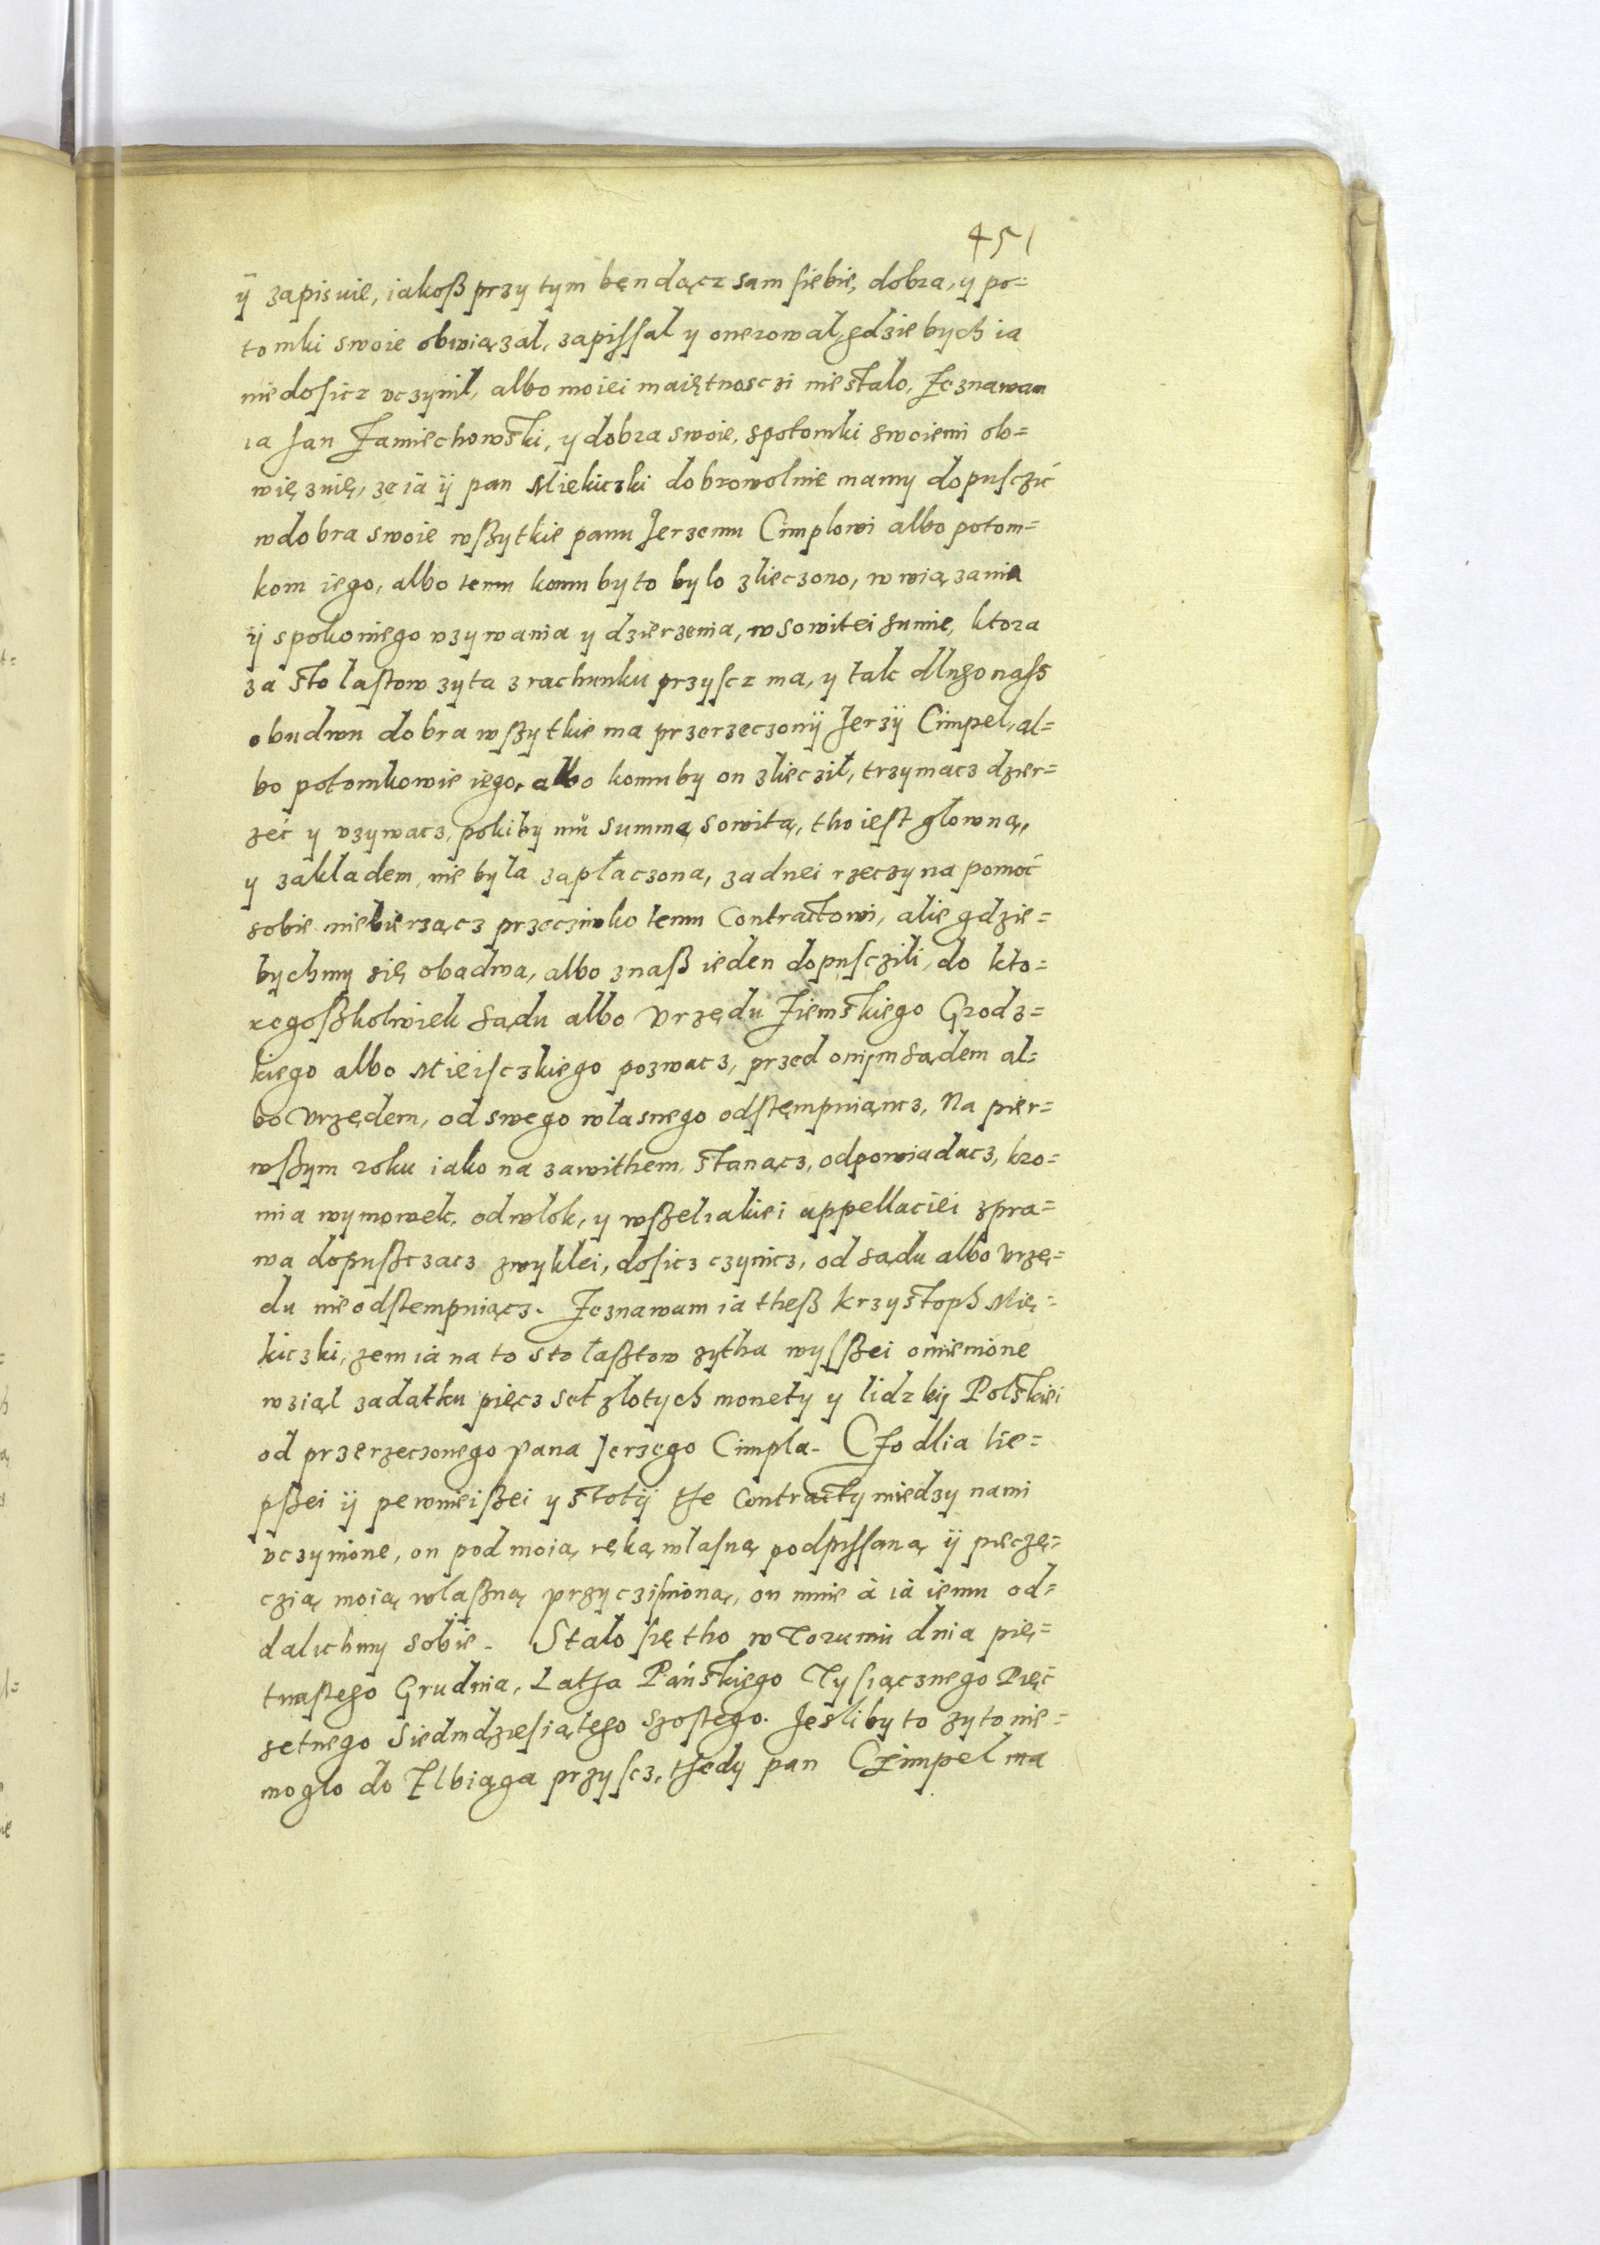 451
ÿ zapisuie, iakoß przy tym bęndącz sam siebie, dobra, y po=
tomki swoie obwiązal, zapissal y onerowal, gdzie bych ia
niedosicz vczynil, albo moiei maiętnosczi niestalo. Zeznawam
ia Jan Zamiechowski, y dobra swoie, spotomki swoiemi ob=
więznię, ze ia ÿ pan Miekiczki dobrowolnie mamy dopusczić
w dobra swoie wßytkie panu Jerzemu Cimplowi albo potom=
kom iego, albo temu komu by to bylo zlieczono, w wiązania
ÿ spokoniego vzywania y dzierzenia, w sowitei sumie, ktora
za sto lastow zyta z rachunku przyscz ma, y tak dlugo nass
obudwu dobra wßytkie ma przerzeczonÿ Jerzÿ Cimpel, al=
bo potomkowie iego, albo komu by on zlieczil, trzymacz dzier=
zeć y vzywacz, pokiby mu summą sowitą, tho iest glowną,
y zakladem, nie byla zaplaczona, zadnei rzeczy na pomoć
sobie niebierzącz przeczinko temu Contractowi, alie gdzie=
bychmy się obadwa, albo znaß ieden dopusczili, do kto=
regoßkolwiek sądu albo Vrzędu Ziemskiego Grodz=
kiego albo Mieisczkiego pozwacz, przed onym sądem al=
bo Vrzędem, od swego wlasnego odstęmpniącz, Na pier=
wßym roku iako na zawithem, stanącz, odpowiadacz, kro=
mia wymowek, odwlok, y wßeliakiei appellaciei zpra=
wa dopußczacz zwyklei, dosicz czynicz, od sądu albo Vrzę=
du nie odstempniącz. Zeznawam ia theß Krzystoph Mię=
kiczki, zem ia na to sto laßtow zytha wyßßei omienione
wziąl zadatku pięcz set zlotych monety y lidzkÿ Polskiei
od przerzeczonego pana Jerzego Cimpla. Czo dlia lie=
pßei ÿ pewnieißei ystotÿ the Contracty miedzy nami
vczynione, on pod moią ręką wlasną podpissaną ÿ pieczę=
czią moią wlaßną przyczisnioną, on mnie à ià iemu od=
dalichmy sobie. Stalo się tho w Toruniu dnia pię=
tnastego Grudnia, Latha Pańskiego Tysiącznego Pięć
setnego Siedmdziesiątego szostego. Jesliby to zyto nie=
moglo do Elbiąga przyscz, thedy pan Czimpel ma